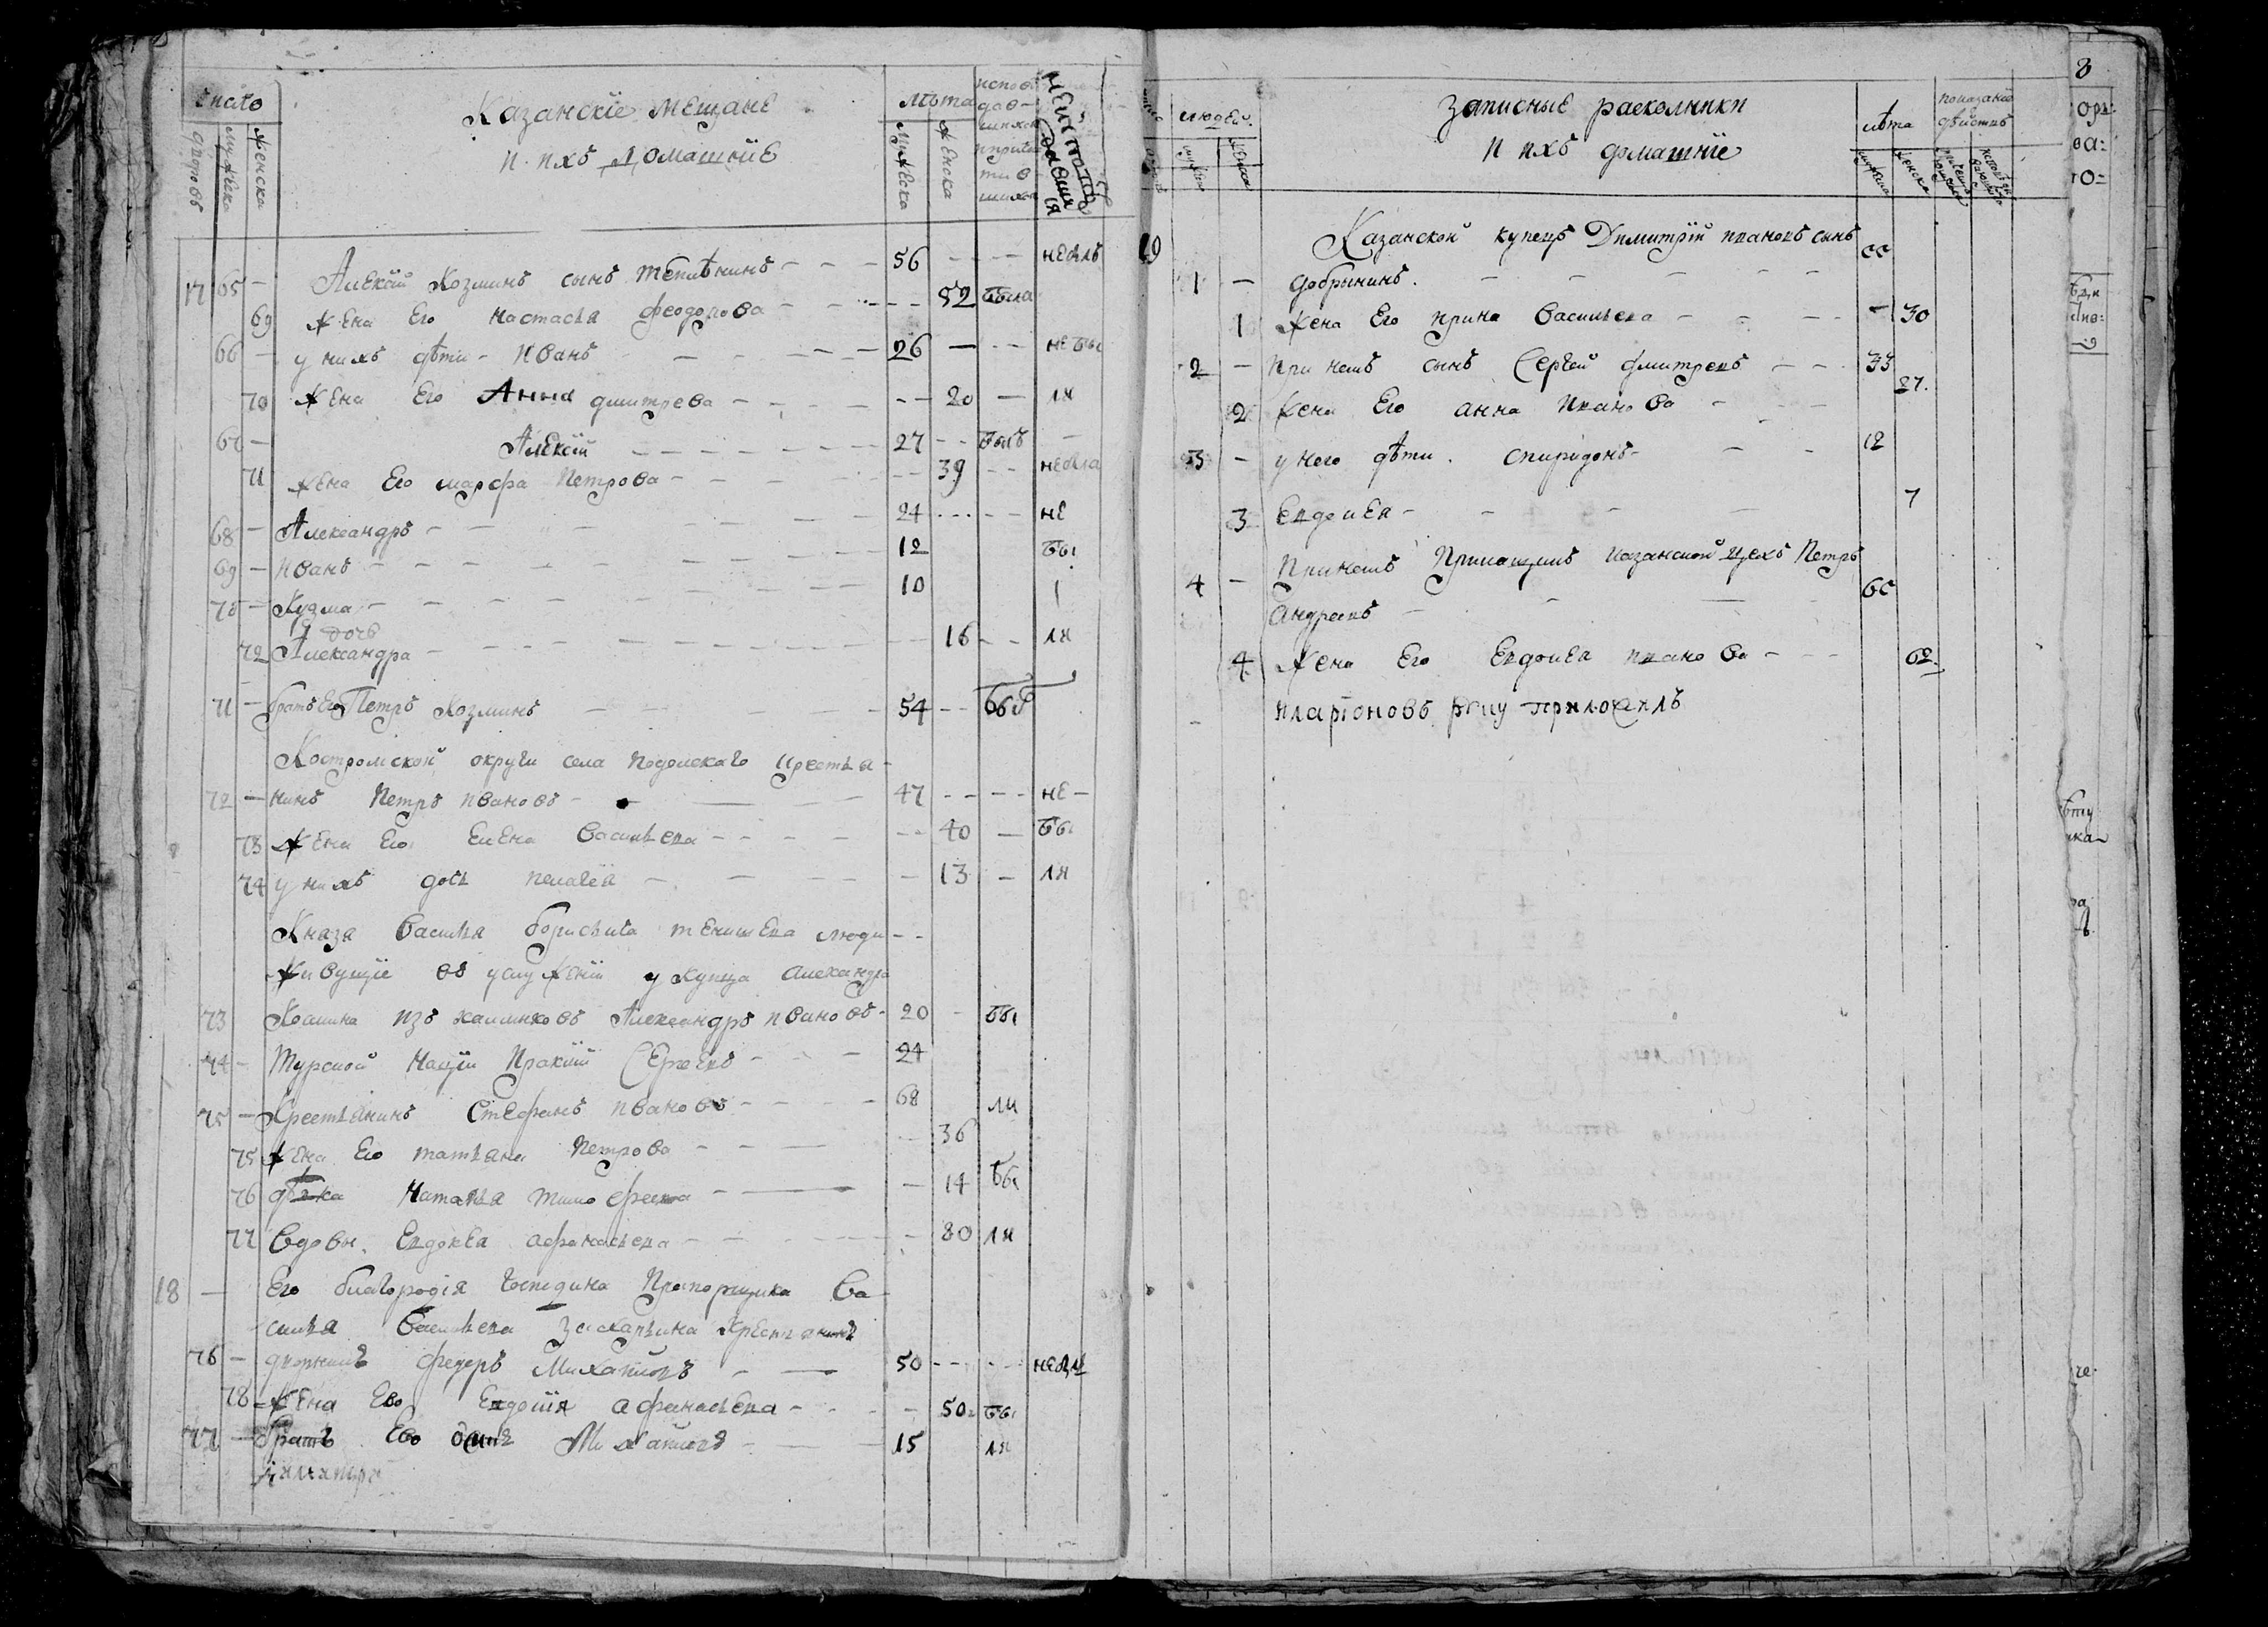 число
дворовъ
мужеска
женска
Казанскіе мещане
и ихъ домашніе
лѣта
мужеска
женска
17 65 — Алексій Козминъ сынъ 56 небылъ
69 жена его настасья феодорова 52 была
66 — у нихъ дѣти - иванъ 26 — небы
70 жена его Анна дмитрева 20 — ля
67 — Алексій 27 былъ —
71 жена его марфа Петрова 39 небыла
68 — Александръ 24 не
69 — иванъ 12 бы
70 — Кузма 10 1
дочь
72 Александра 16 ля
71 — братъ его Петръ Козминъ 54
Костромской округи села подолскаго крестья-
72 — нинъ Петръ ивановъ 47 не —
73 жена его Елена васильева 40 — бы
74 у нихъ дочь пелагея 13 — ля
Князя василья борисыча тенишева люди
живущіе въ услуженіи у купца александра
73 изъ калмыковъ Александръ ивановъ 20 бы
74 — Турской нации Ираклій Сергеевъ 24
75 — Крестьянинъ Стефанъ ивановъ 68 ли
75 жена его татьяна Петрова 36
76 дѣвка наталья тимофеева 14 бы
77 вдова Евдокея афанасьева 80 ля
18 — Его благородія господина Прапорщика Ва-
силья васильева крестьянинъ
76 — дворникъ федоръ Михайловъ 50 небы
78 жена Ево Евдокия афанасьева 50 бы
77 — братъ Ево Михайловъ 15 ля
людей
мужеска
женска
записные расколники
и ихъ домашніе
лѣта
мужеска
женска
показаніе
дѣйства
19 Казанской купецъ Димитрій ивановъ сынъ
1 — добрынинъ. 55
1 жена Его ирина васильева — 30
2 — при немъ сынъ Сергей дмитревъ 33
2 жена Его анна иванова 27.
3 — у него дѣти. спиридонъ 12
3 Евдокея 7
4 — При немъ казанской цеха Петръ
андреевъ 60
4 жена Его Евдокея иванова 62.
иларіоновъ руку приложилъ
8